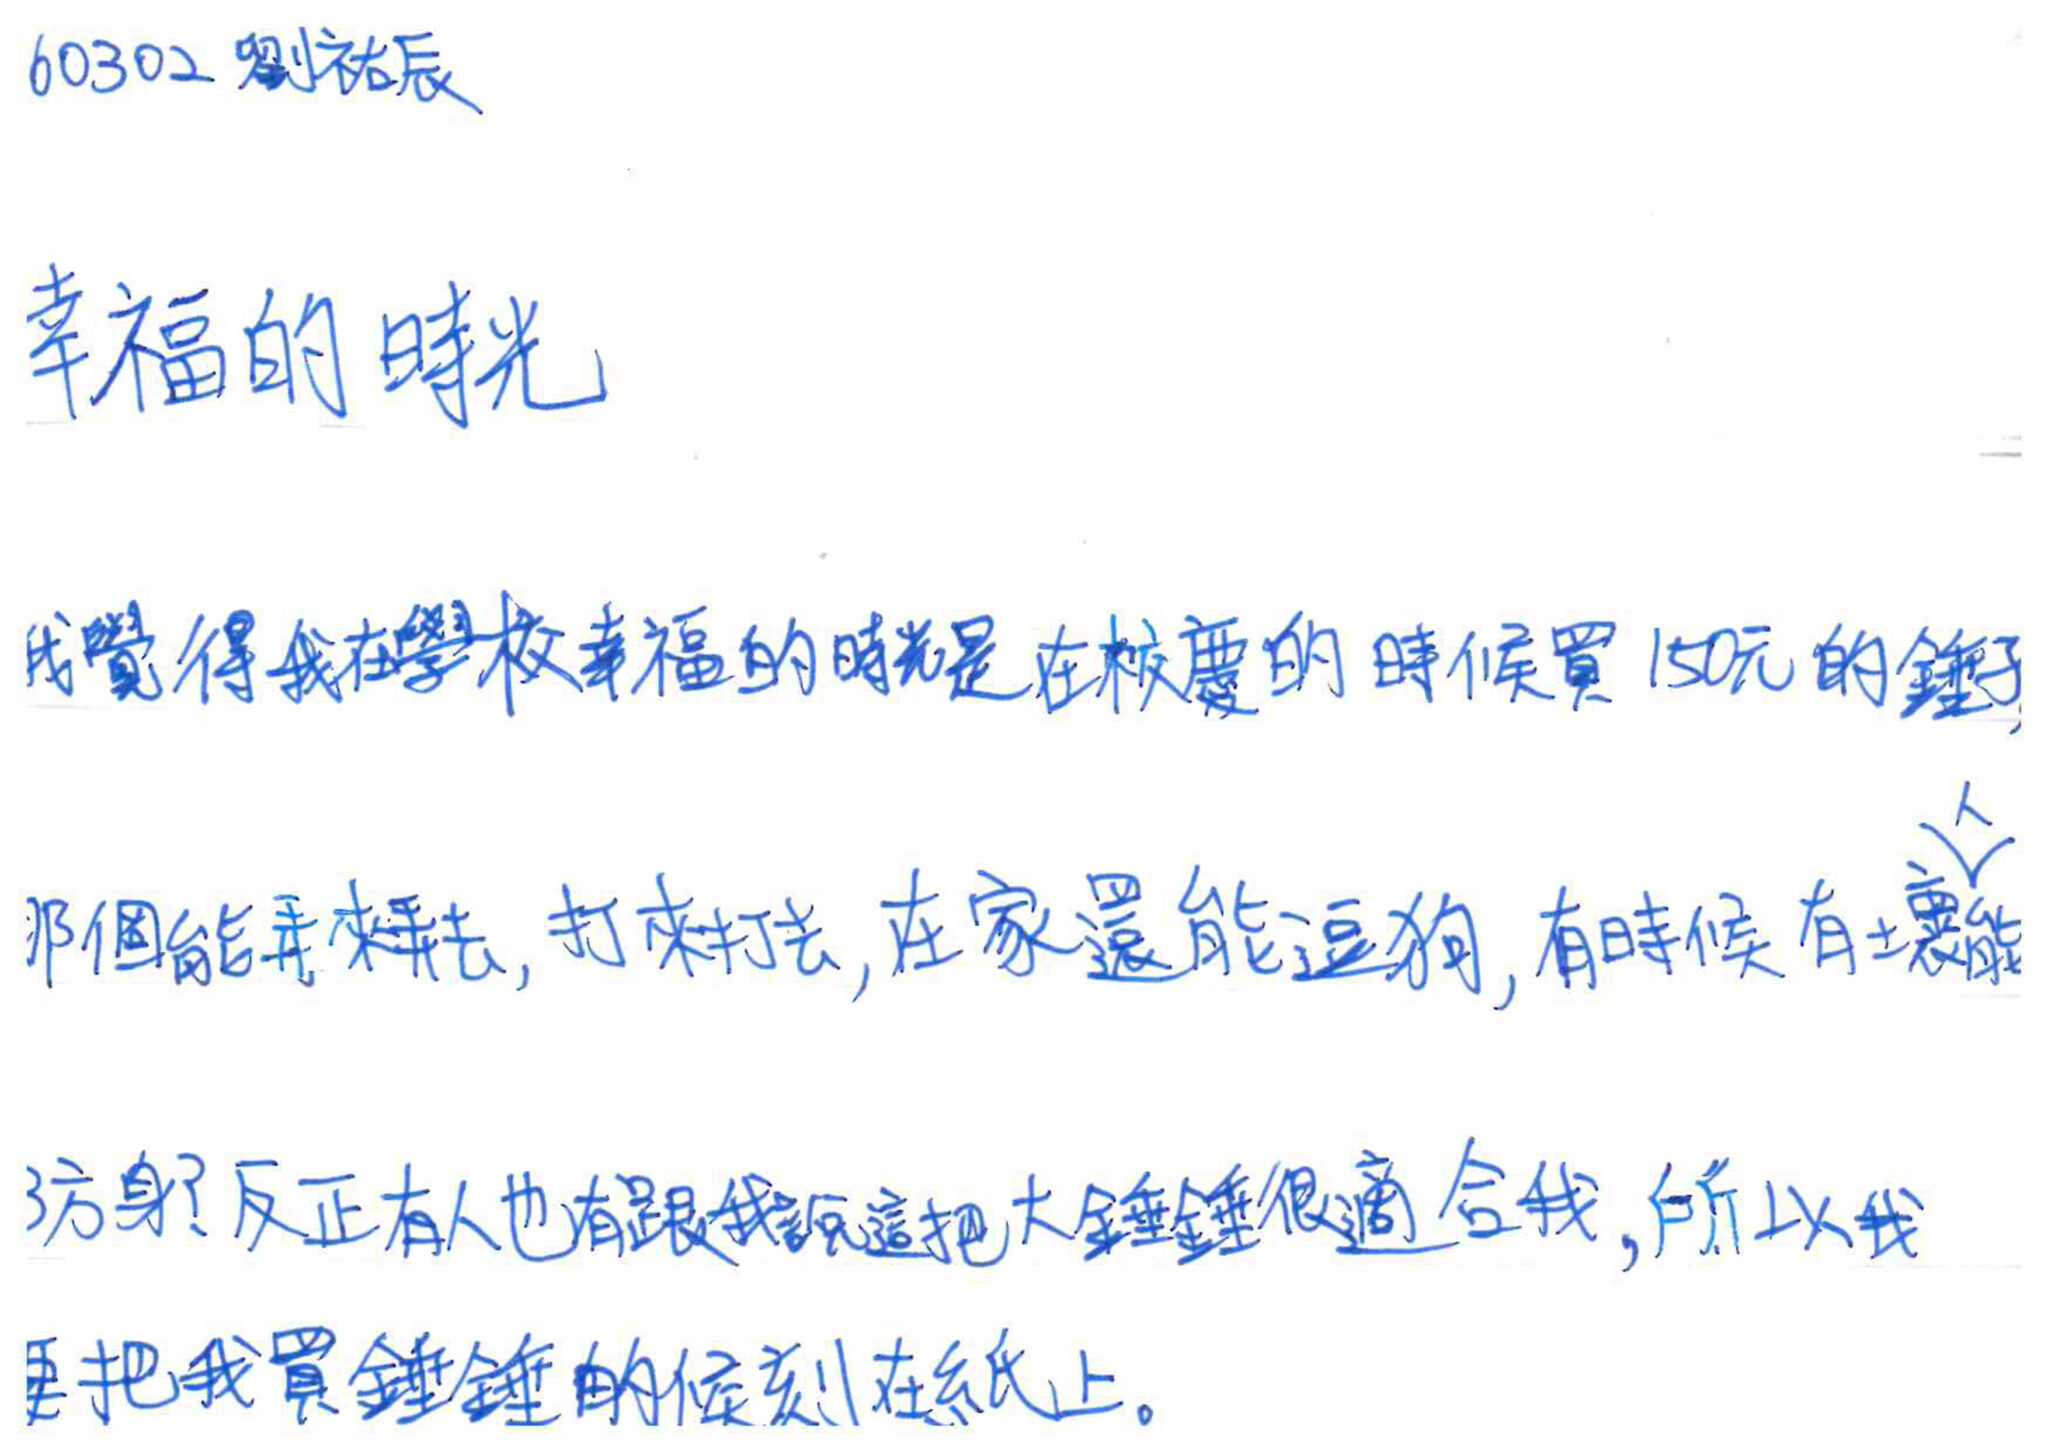 60302 劉祐辰
幸福的時光
我覺得我在學校幸福的時光是在校慶的時候買150元的錘子,
那個能弄來弄去,打來打去,在家還能逗狗,有時候有壞人能
防身?反正有人也有跟我說這把大錘錘很適合我,所以我
要把我買錘錘的候刻在紙上。